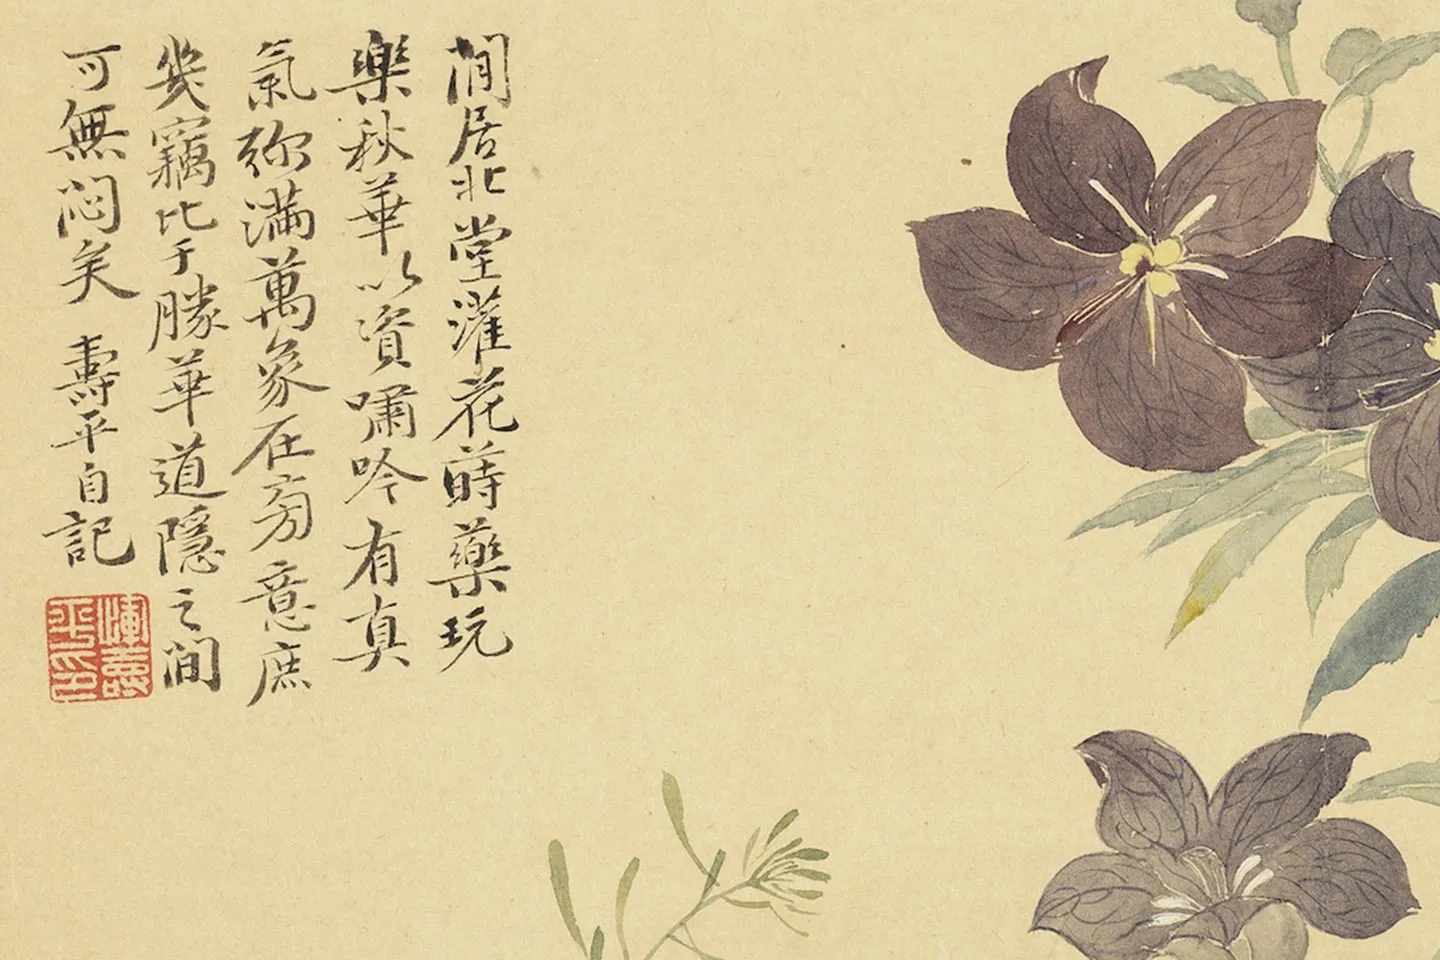 閒居北堂灌花蒔藥玩
樂秋華以資嘯吟有真
氣弥滿萬象在旁意庶
幾竊比于勝華道隱之間
可無悶矣 壽平自記
惲壽平印